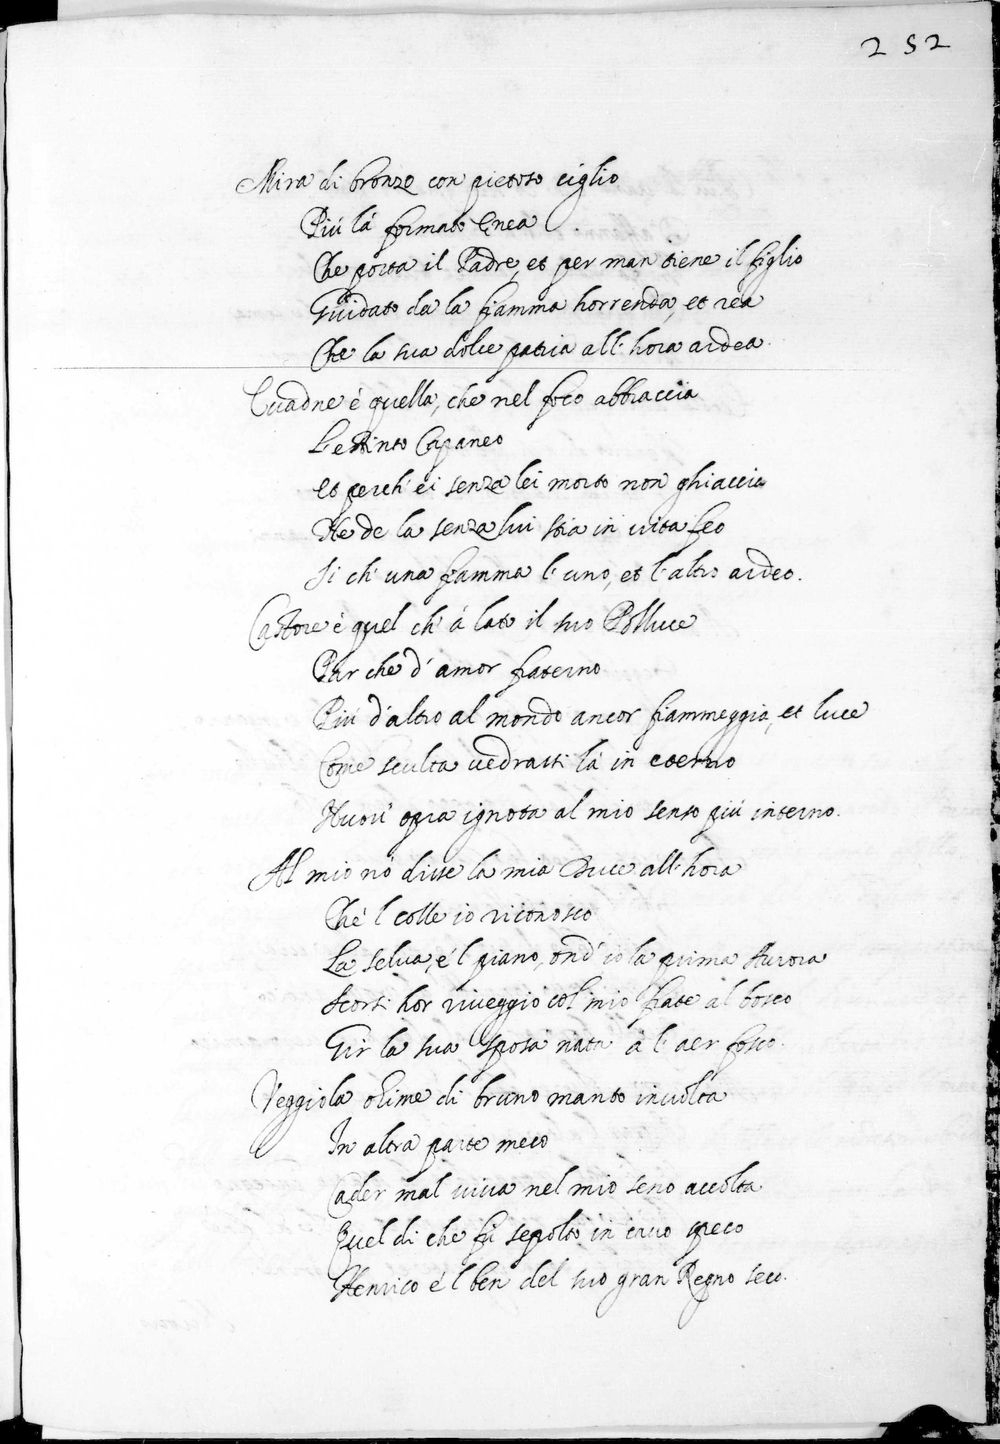 252
Mira di bronzo con pietoso ciglio
Più là formato Enea
Che porta il Padre, et per man tiene il figlio
Guidato da la fiamma horrenda, et rea
Che la sua dolce patria all'hora ardea.
Evadne è quella, che nel foco abbraccia
L'estinto Capaneo
Et perch'ei senza lei morto non ghiaccia
Ne de la senza lui stia in vita feo
Si ch'una fiamma l'uno, et l'altro ardeo.
Castore è quel ch'à lato il suo Polluce
Par che d'amor fraterno
Più d'altro al mondo ancor fiammeggia, et luce
Come sculta vedrasti là in eterno
Nuov'opra ignota al mio senso più interno.
Al mio nò disse la mia Duce all'hora
Che'l colle io riconosco
La selva, e'l piano, ond'io la prima Aurora
Scorsi hor riveggio col mio frate al bosco
Gir la sua sposa nata à l'aer fosco.
Veggiola ohime di bruno manto involta
In altra parte meco
Cader mal viva nel mio seno accolta
Quel di che fù sepolto in cavo speco
Henrico e'l ben del suo gran Regno seco.